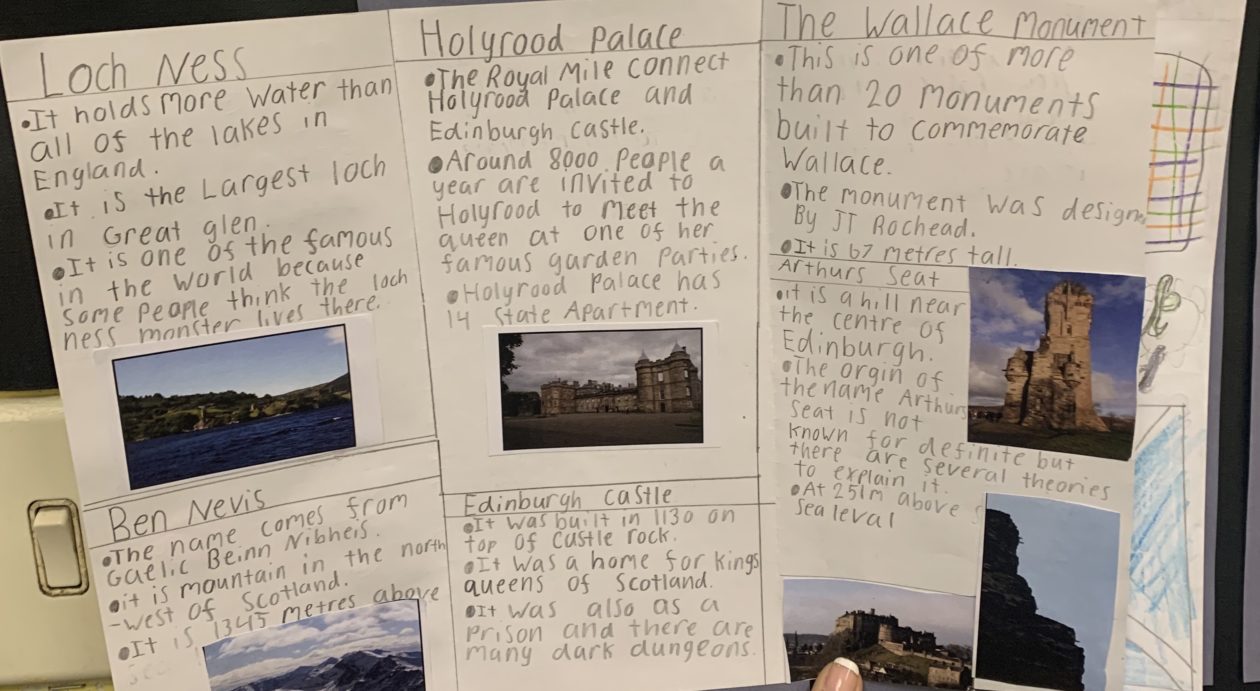 Loch Ness
•It holds more water than
all of the lakes in
England.
•It is the Largest loch
in Great glen.
•It is one of the famous
in the world because
some people think the loch
ness monster lives there.
Ben Nevis
•The name comes from
Gaelic Beinn Nibheis.
•it is mountain in the north
-west of Scotland.
•It is 1345 metres above
Holyrood Palace
•The Royal Mile connect
Holyrood Palace and
Edinburgh castle.
•Around 8000 people a
year are invited to
Holyrood to meet the
queen at one of her
famous garden parties.
•Holyrood Palace has
14 State Apartment.
Edinburgh castle
•It was built in 1130 on
top of castle rock.
•It was a home for kings
queens of Scotland.
•It was also as a
prison and there are
many dark dungeons.
The Wallace Monument
•This is one of more
than 20 Monuments
built to commemorate
Wallace.
•The monument was design
By JT Rochead.
•It is 67 metres tall.
Arthurs Seat
•it is a hill near
the centre of
Edinburgh.
•The orgin of
the name Arthurs
Seat is not
known for definite but
there are several theories
to explain it.
•At 251m above s
sea leval